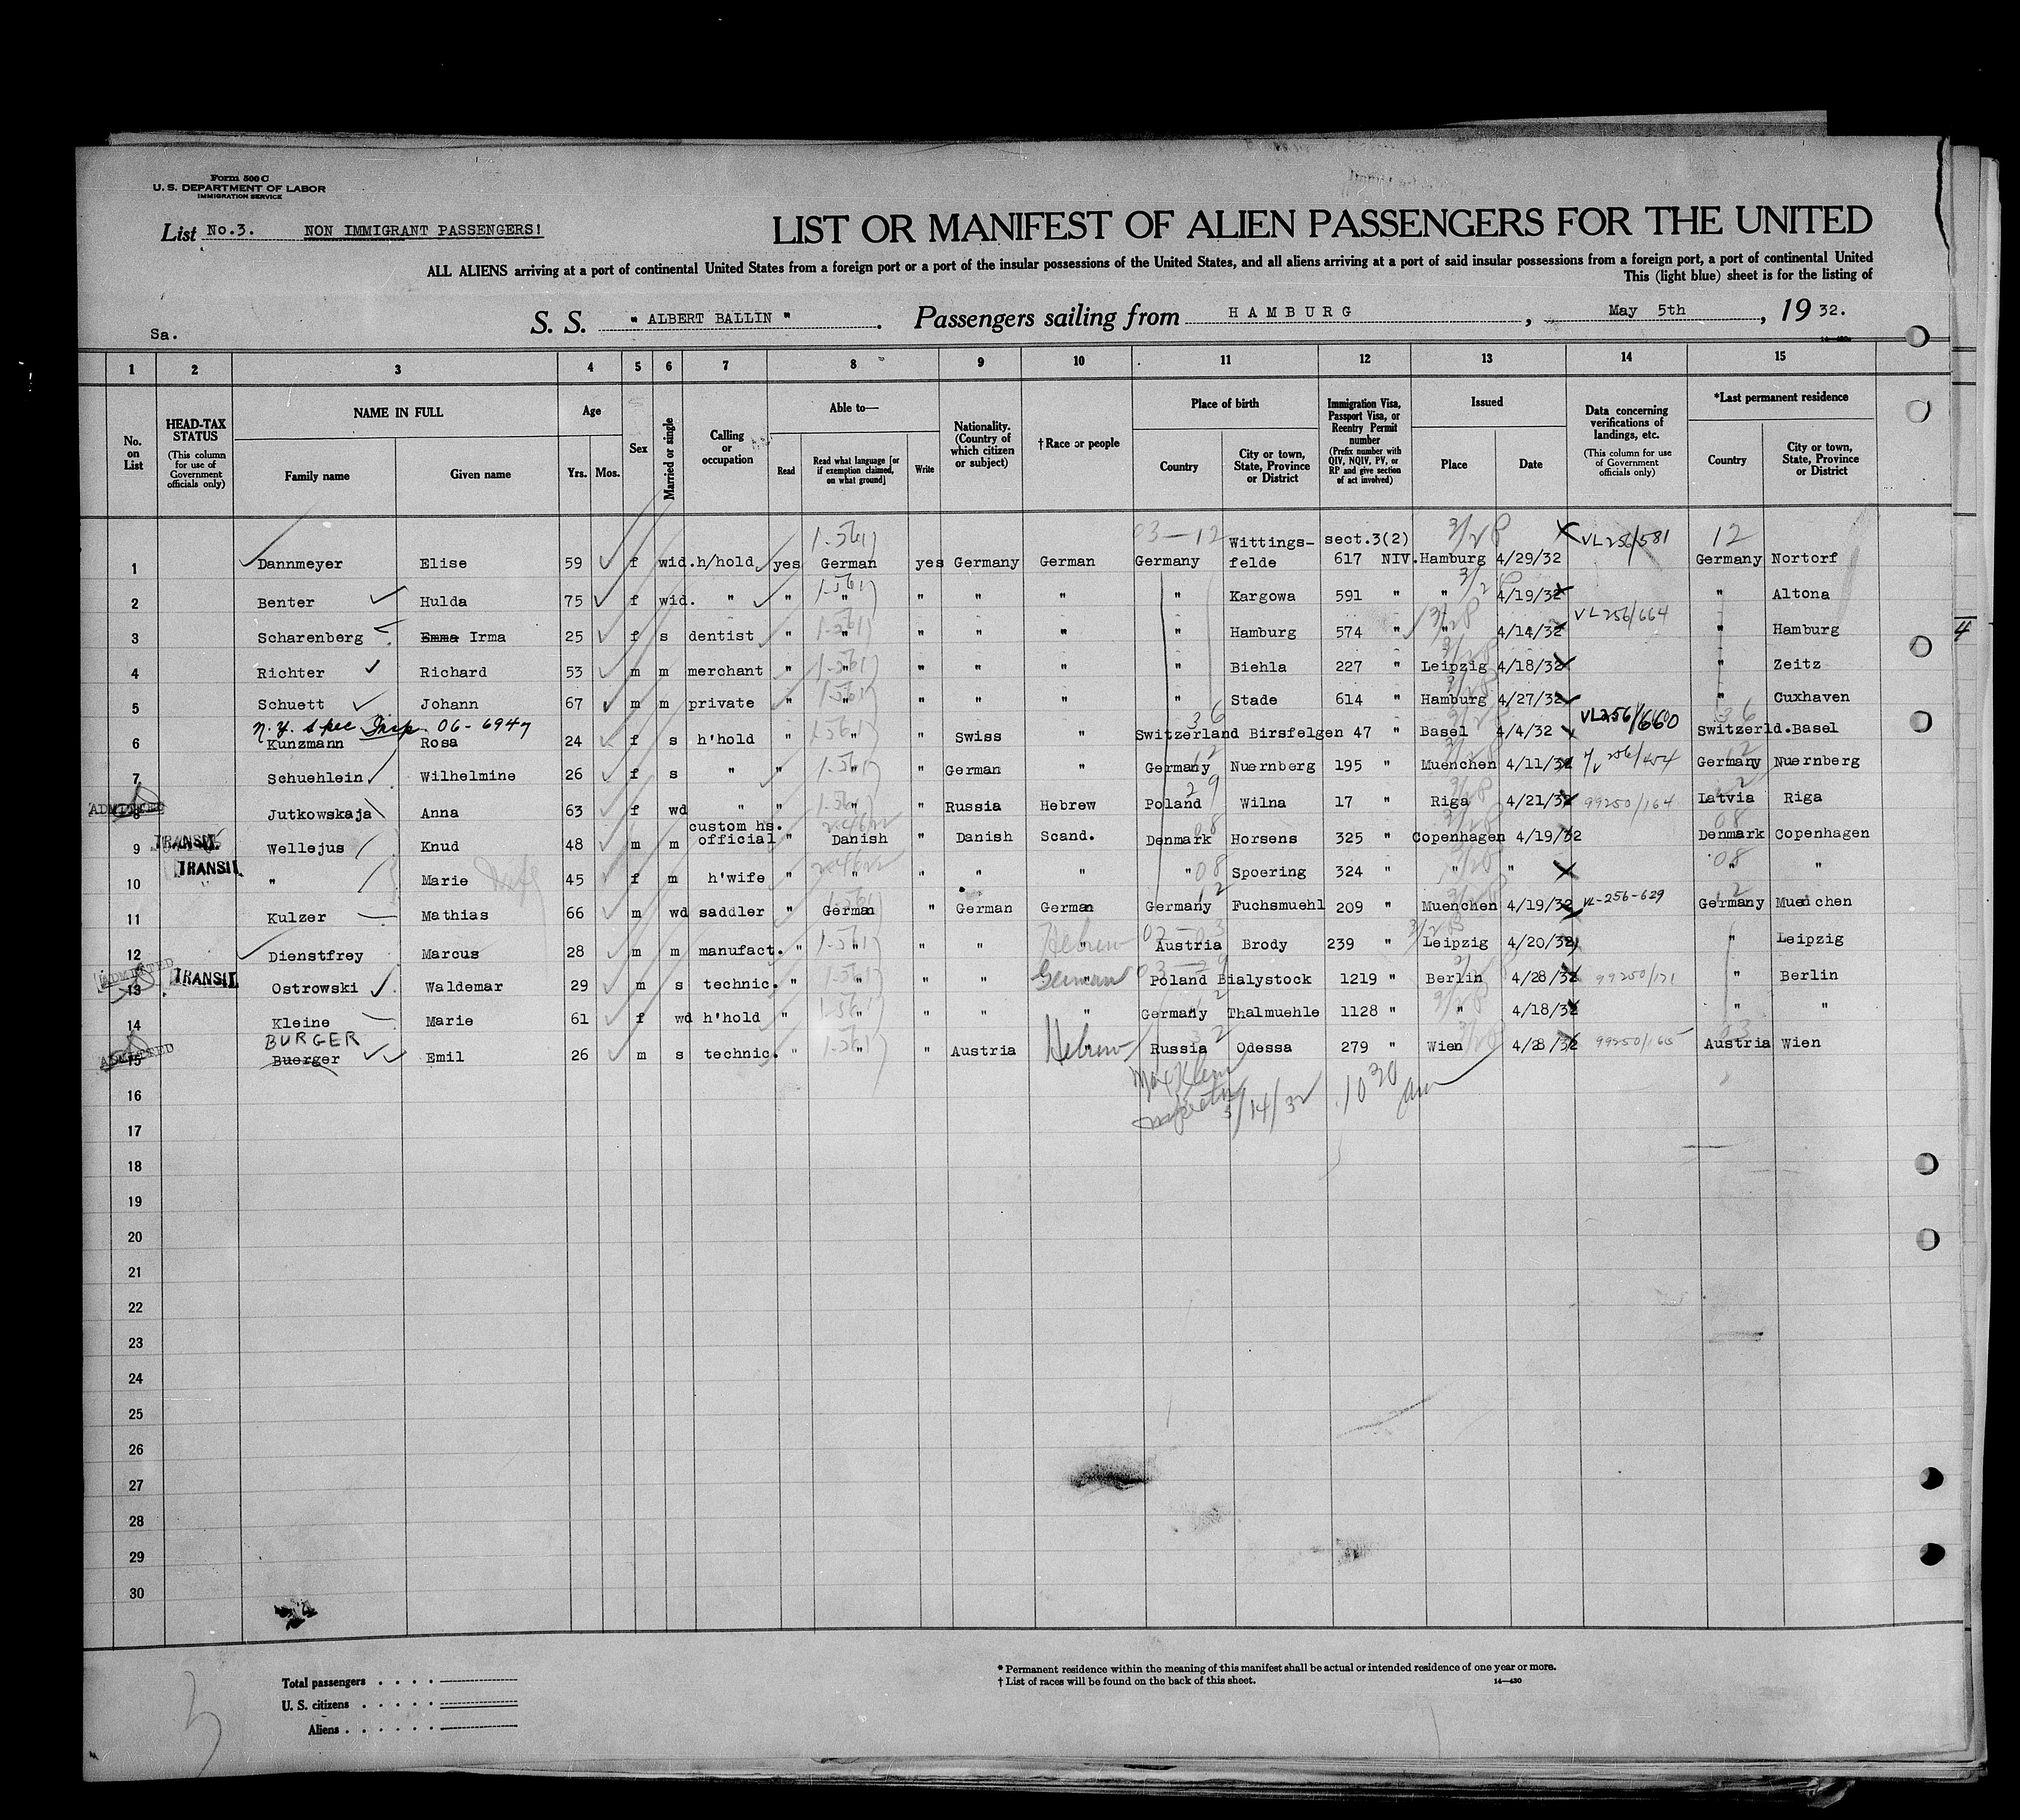 Form 500 C
U. S. DEPARTMENT OF LABOR
IMMIGRATION SERVICE
List No.3. NON IMMIGRANT PASSENGERS!
LIST OR MANIFEST OF ALIEN PASSENGERS FOR THE UNITED
ALL ALIENS arriving at a port of continental United States from a foreign port or a port of the insular possessions of the United States, and all aliens arriving at a port of said insular possessions from a foreign port, a port of continental United
This (light blue) sheet is for the listing of
S. S. " ALBERT BALLIN ". Passengers sailing from HAMBURG, May 5th, 19 32.
Sa.
1 2 3 4 5 6 7 8 9 10 11 12 13 14 15
No. on List
HEAD-TAX STATUS (This column for use of Government officials only)
NAME IN FULL
Family name Given name
Age
Yrs. Mos.
Sex
Married or single
Calling or occupation
Able to—
Read Read what language [or if exemption claimed, on what ground] Write
Nationality. (Country of which citizen or subject)
†Race or people
Place of birth
Country City or town, State, Province or District
Immigration Visa, Passport Visa, or Reentry Permit number (Prefix number with QIV, NQIV, PV, or RP and give section of act involved)
Issued
Place Date
Data concerning verifications of landings, etc. (This column for use of Government officials only)
*Last permanent residence
Country City or town, State, Province or District
03-12 Wittings- sect.3(2) VL256/581 12
1 Dannmeyer Elise 59 f wid. h/hold yes German yes Germany German Germany felde 617 NIV. Hamburg 4/29/32 Germany Nortorf
2 Benter Hulda 75 f wid. " " " " " " " Kargowa 591 " " 4/19/32 " Altona
VL256/664
3 Scharenberg Emma Irma 25 f s dentist " " " " " " Hamburg 574 " " 4/14/32 " Hamburg
4 Richter Richard 53 m m merchant " " " " " " Biehla 227 " Leipzig 4/18/32 " Zeitz
5 Schuett Johann 67 m m private " " " " " " Stade 614 " Hamburg 4/27/32 " Cuxhaven
N.Y. Spec Insp. 06-6947 36 VL256/660 36
6 Kunzmann Rosa 24 f s h'hold " " " Swiss " Switzerland Birsfelgen 47 " Basel 4/4/32 Switzerld. Basel
7 Schuehlein Wilhelmine 26 f s " " " " German " Germany Nuernberg 195 " Muenchen 4/11/32 Germany Nuernberg
ADMITTED
8 Jutkowskaja Anna 63 f wd " " " " Russia Hebrew Poland Wilna 17 " Riga 4/21/32 99250/164 Latvia Riga
TRANSIT. custom hs.
9 Wellejus Knud 48 m m official " Danish " Danish Scand. Denmark Horsens 325 " Copenhagen 4/19/32 Denmark Copenhagen
TRANSIT 08 08
10 " Marie 45 f m h'wife " " " " " " Spoering 324 " " " " "
11 Kulzer Mathias 66 m wd saddler " German " German German Germany Fuchsmuehl 209 " Muenchen 4/19/32 VL-256-629 Germany Muenchen
12 Dienstfrey Marcus 28 m m manufact. " " " " Hebrew " Austria Brody 239 " Leipzig 4/20/32 " Leipzig
ADMITTED TRANSIT
13 Ostrowski Waldemar 29 m s technic. " " " " German " Poland Bialystock 1219 " Berlin 4/28/32 99250/171 " Berlin
14 Kleine Marie 61 f wd h'hold " " " " " Germany Thalmuehle 1128 " " 4/18/32 " "
BURGER
ADMITTED
15 Buerger Emil 26 m s technic. " " " Austria Hebrew " Russia Odessa 279 " Wien 4/28/32 99250/165 Austria Wien
Max Klein
Inspector 5/14/32 10 30 am
16
17
18
19
20
21
22
23
24
25
26
27
28
29
30
4
Total passengers . . . .
U. S. citizens . . . . .
Aliens . . . . . .
* Permanent residence within the meaning of this manifest shall be actual or intended residence of one year or more.
† List of races will be found on the back of this sheet. 14—430